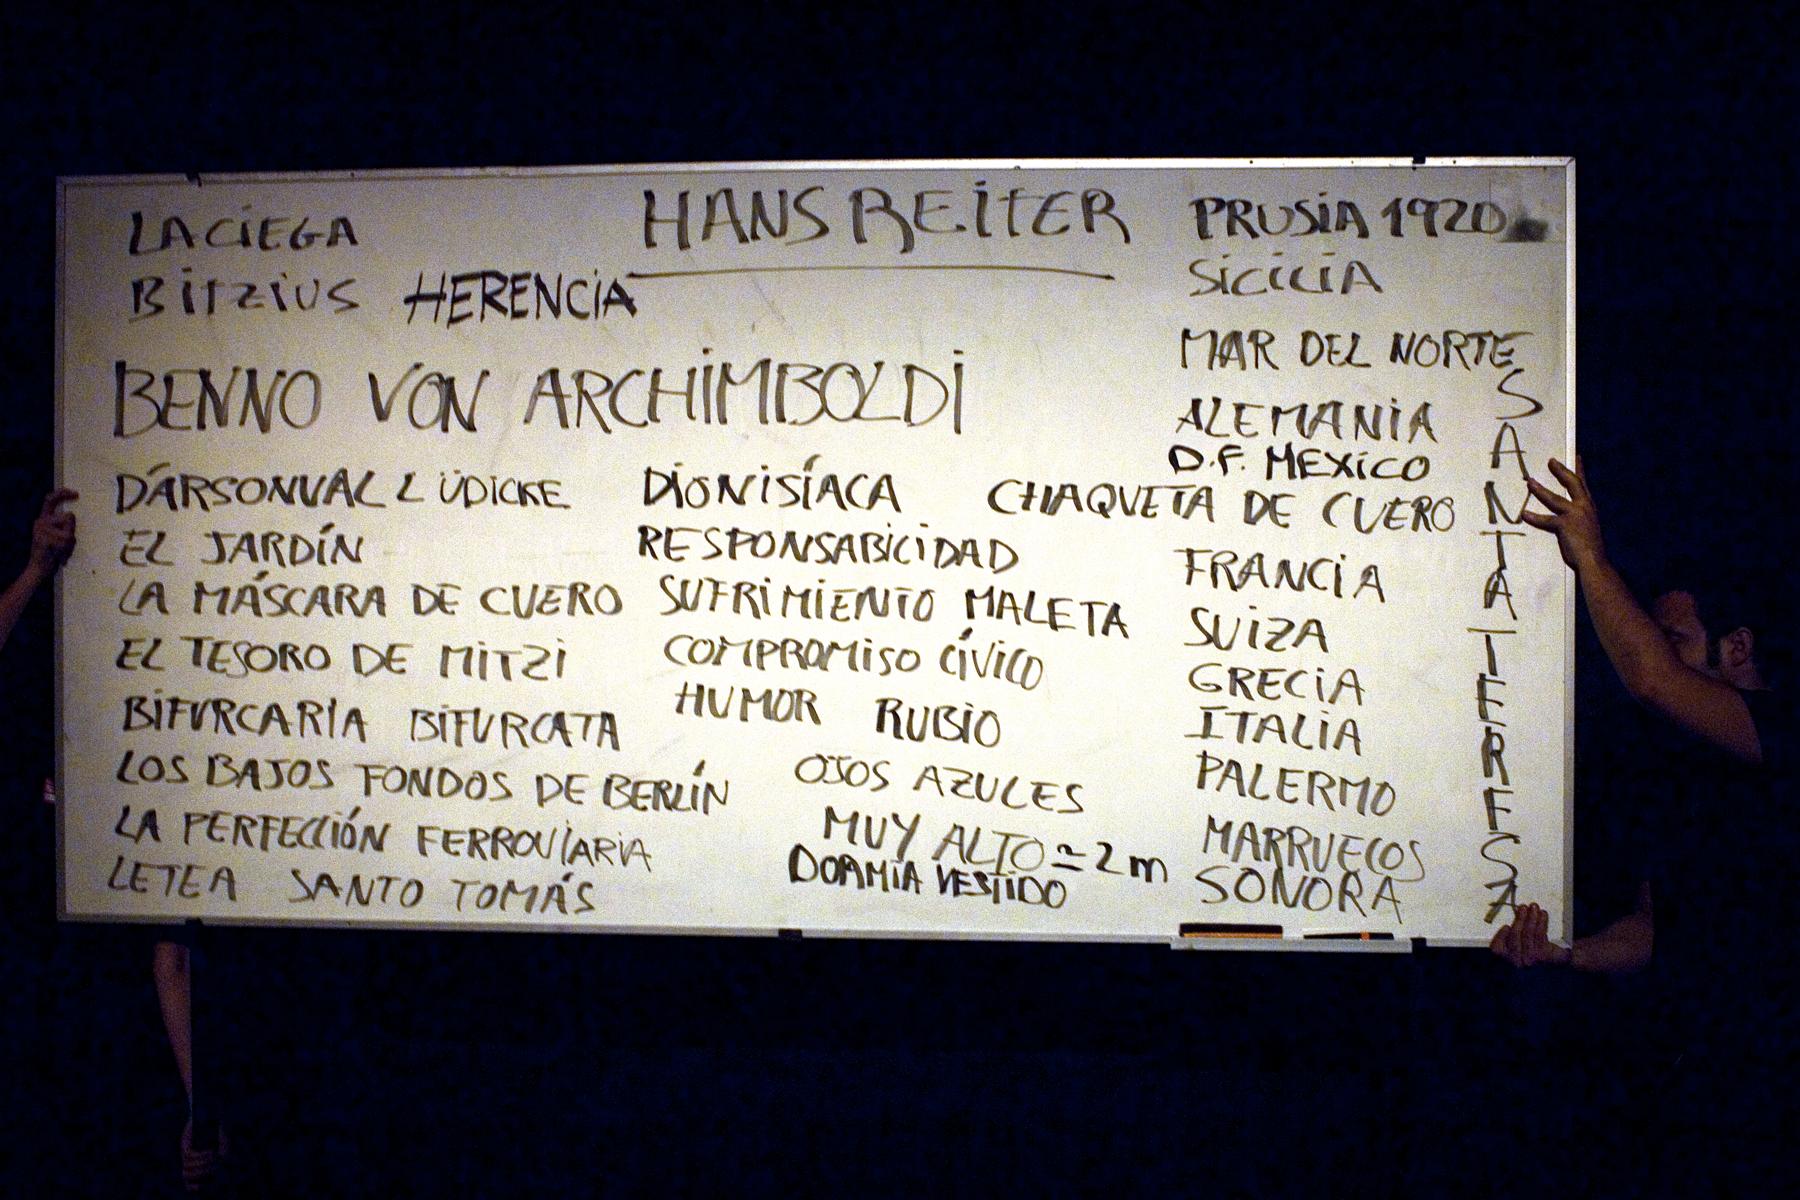 LA CIEGA HANS REITER PRUSIA 1920
BITZIUS HERENCIA SICILIA
MAR DEL NORTE
BENNO VON ARCHIMBOLDI ALEMANIA
D.F. MEXICO
D'ÁRSONVAL LÜDICKE DIONISÍACA CHAQUETA DE CUERO
EL JARDÍN RESPONSABILIDAD FRANCIA
LA MÁSCARA DE CUERO SUFRIMIENTO MALETA SUIZA
EL TESORO DE MITZI COMPROMISO CÍVICO GRECIA
BIFURCARIA BIFURCATA HUMOR RUBIO ITALIA
LOS BAJOS FONDOS DE BERLÍN OJOS AZULES PALERMO
LA PERFECCIÓN FERROVIARIA MUY ALTO ≃ 2 m MARRUECOS
LETEA SANTO TOMÁS DORMÍA VESTIDO SONORA
SANTA TERESA